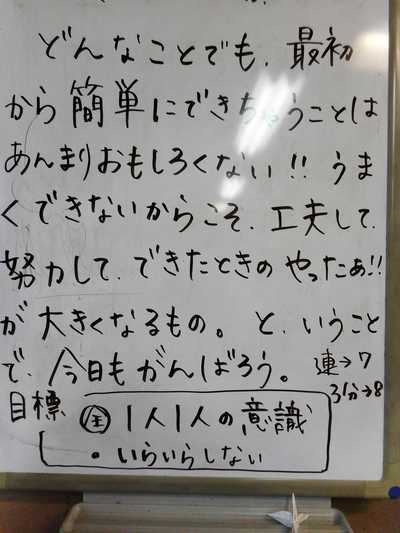 どんなことでも、最初
から簡単にできちゃうことは
あんまりおもしろくない!! うま
くできないからこそ、工夫して、
努力して、できたときの やったぁ!!
が 大きくなるもの。 と、いうこと
で、今日もがんばろう。
連→7
31分→8
目標
全 1人1人の意識
・いらいらしない